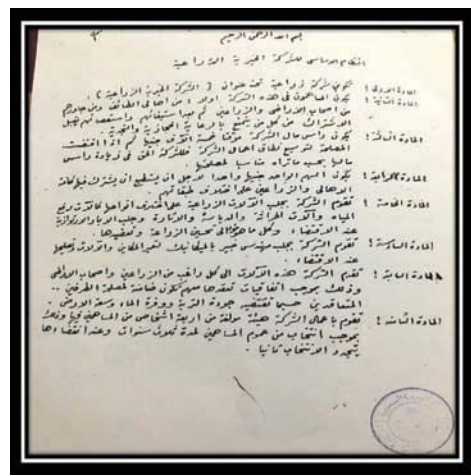 بسم الله الرحمن الرحيم
النظام الاساسي للشركة الخيرية الزراعية
المادة الاولى : تكون شركة زراعية تحت عنوان ( الشركة الخيرية الزراعية )
المادة الثانية : يكون المساهمون في هذه الشركة اولا : من اهالي الطائف ومن جاورهم
من اصحاب الاراضي والزراعين ثم بعد استيفائهم واستقصائهم تقبل
الاشتراك من كل من يتمتع بالرعاية الحجازية والنجدية .
المادة الثالثة : يكون رأس مال الشركة مؤقتا خمسة آلاف جنيها ثم اذا اقتضت
المصلحة لتوسيع نطاق اعمال الشركة فللشركة الحق في زيادة رأس
مالها بحسب ماتراه مناسبا لمصلحتها .
المادة الرابعة : يكون السهم الواحد جنيها واحدا لأجل ان يستطيع ان يشترك فيها كافة
الاهالي والزراعين على اختلاف طبقاتهم
المادة الخامسة : تقوم الشركة بجلب الآلات الزراعية على اختلاف انواعها كآلات رفع
المياه وآلات الحراثة والدياسة والذراوة وجلب الآبار الارتوازية
عند الاقتضاء وكل ماهو الى تحسين الزراعة وتعضيدها .
المادة السادسة : تقوم الشركة بجلب مهندس خبير بالميكانيك لتعمير المكاين والآلات وتصليحها
عند الاقتضاء .
المادة السابعة : تقدم الشركة هذه الآلات الى كل راغب من الزراعين واصحاب الاراضي
وذلك بموجب اتفاقيات تعقدها معهم تكون ضامنة لمصلحة الطرفين ..
المتعاقدين حسبما تقتضيه جودة التربة ووفرة الماء وسعة الارض .
المادة الثامنة : تقوم باعمال الشركة هيئة مؤلفة من اربعة اشخاص من المساهمين وذلك
بموجب انتخاب من عموم المساهمين لمدة ثلاث سنوات وعند انقضاءها
يتجدد الانتخاب ثانيا .